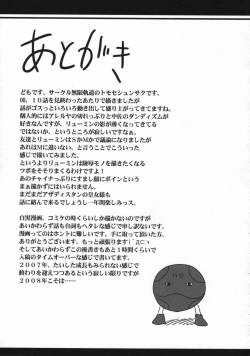 あとがき
どもです、サークル無限軌道のトモセシュンサクです。
00、10話を見終わったあたりで描きましたが
話がゴスっといろいろ動き出して盛り上がってきますね。
個人的にはアレルヤの切れっぷりと中佐のダンディズムが
好きなんですが、リューミンの影が薄くなってきてる
ではないか、というところが寂しいですなぁ。
友達とリューミンはSかMかで議論になりましたが
あれはMに違いない、と言うことでこういった
感じで描いてみました。
というよりリューミンは陵辱モノを描きたくなる
ツボをそそりまくるわけですよ!
あのチャイナっぽにすまし顔にボインという
まぁ描かずにはいられません。
まだまだアザディスタンの皇女様も
話に絡んで来るでしょうし一年間楽しみっス。

白黒漫画、コミケの時くらいしか描かないのですが
あいかわらず話も台詞もヘタレな感じで申し訳ないです。
漫画ってのはホントに難しいです。手に取って頂いた方、
ありがとうございます。もっと頑張ります
そしてあいかわらずこの後書きもあと1時間くらいで
入稿のタイムオーバーな感じで書いてます。
2007年、たいした成長もみられない感じで
終わりを迎えつつあるという寂しい限りですが
2008年こそは……